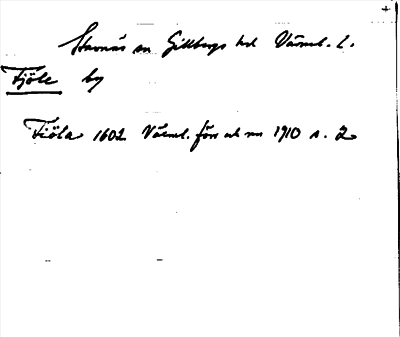 Stavnäs sn Gillbergs hd Värml. l.
Fjöle by
Fiöla 1602 Värml. förr och nu 1910 s. 2